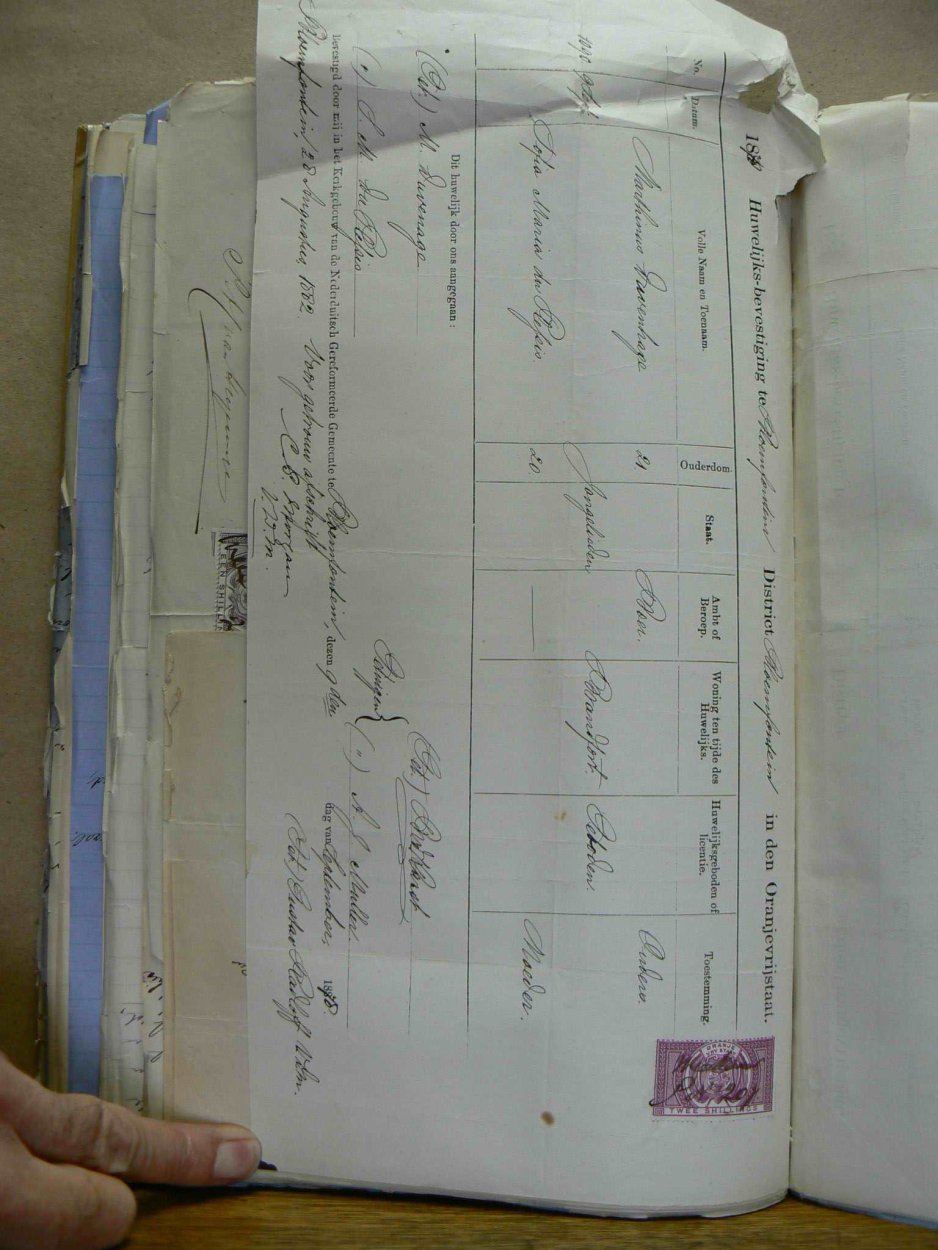 1878 Huwelijks-bevestiging te Bloemfontein District Bloemfontein in den Oranjevrijstaat.
No. Datum. Volle Naam en Toenaam. Ouderdom. Staat. Ambt of Beroep. Woning ten tijde des Huwelijks. Huwelijksgeboden of licentie. Toestemming.
Marthinus Duvenhage 21 Boer. Ouders.
1878 9 Sept. Jongelieden Brandfort. Geboden.
Sofia Maria du Plesis. 20 Moeder.
Dit huwelijk door ons aangegaan:
(Get) M. Duvenage (Get)
Getuigen
(") S. M. du Plesis (") A. J. Muller
Bevestigd door mij in het Kerkgebouw van de Nederduitsch Gereformeerde Gemeente te Bloemfontein, dezen 9den dag van September, 1878
Bloemfontein, 28 Augustus 1882. Voor getrouw afschrift (Get) Gustav Radloff V.D.M.
V.D.M.
ORANJE VRY STAAT
TWEE SHILLINGS
EEN SHILLING